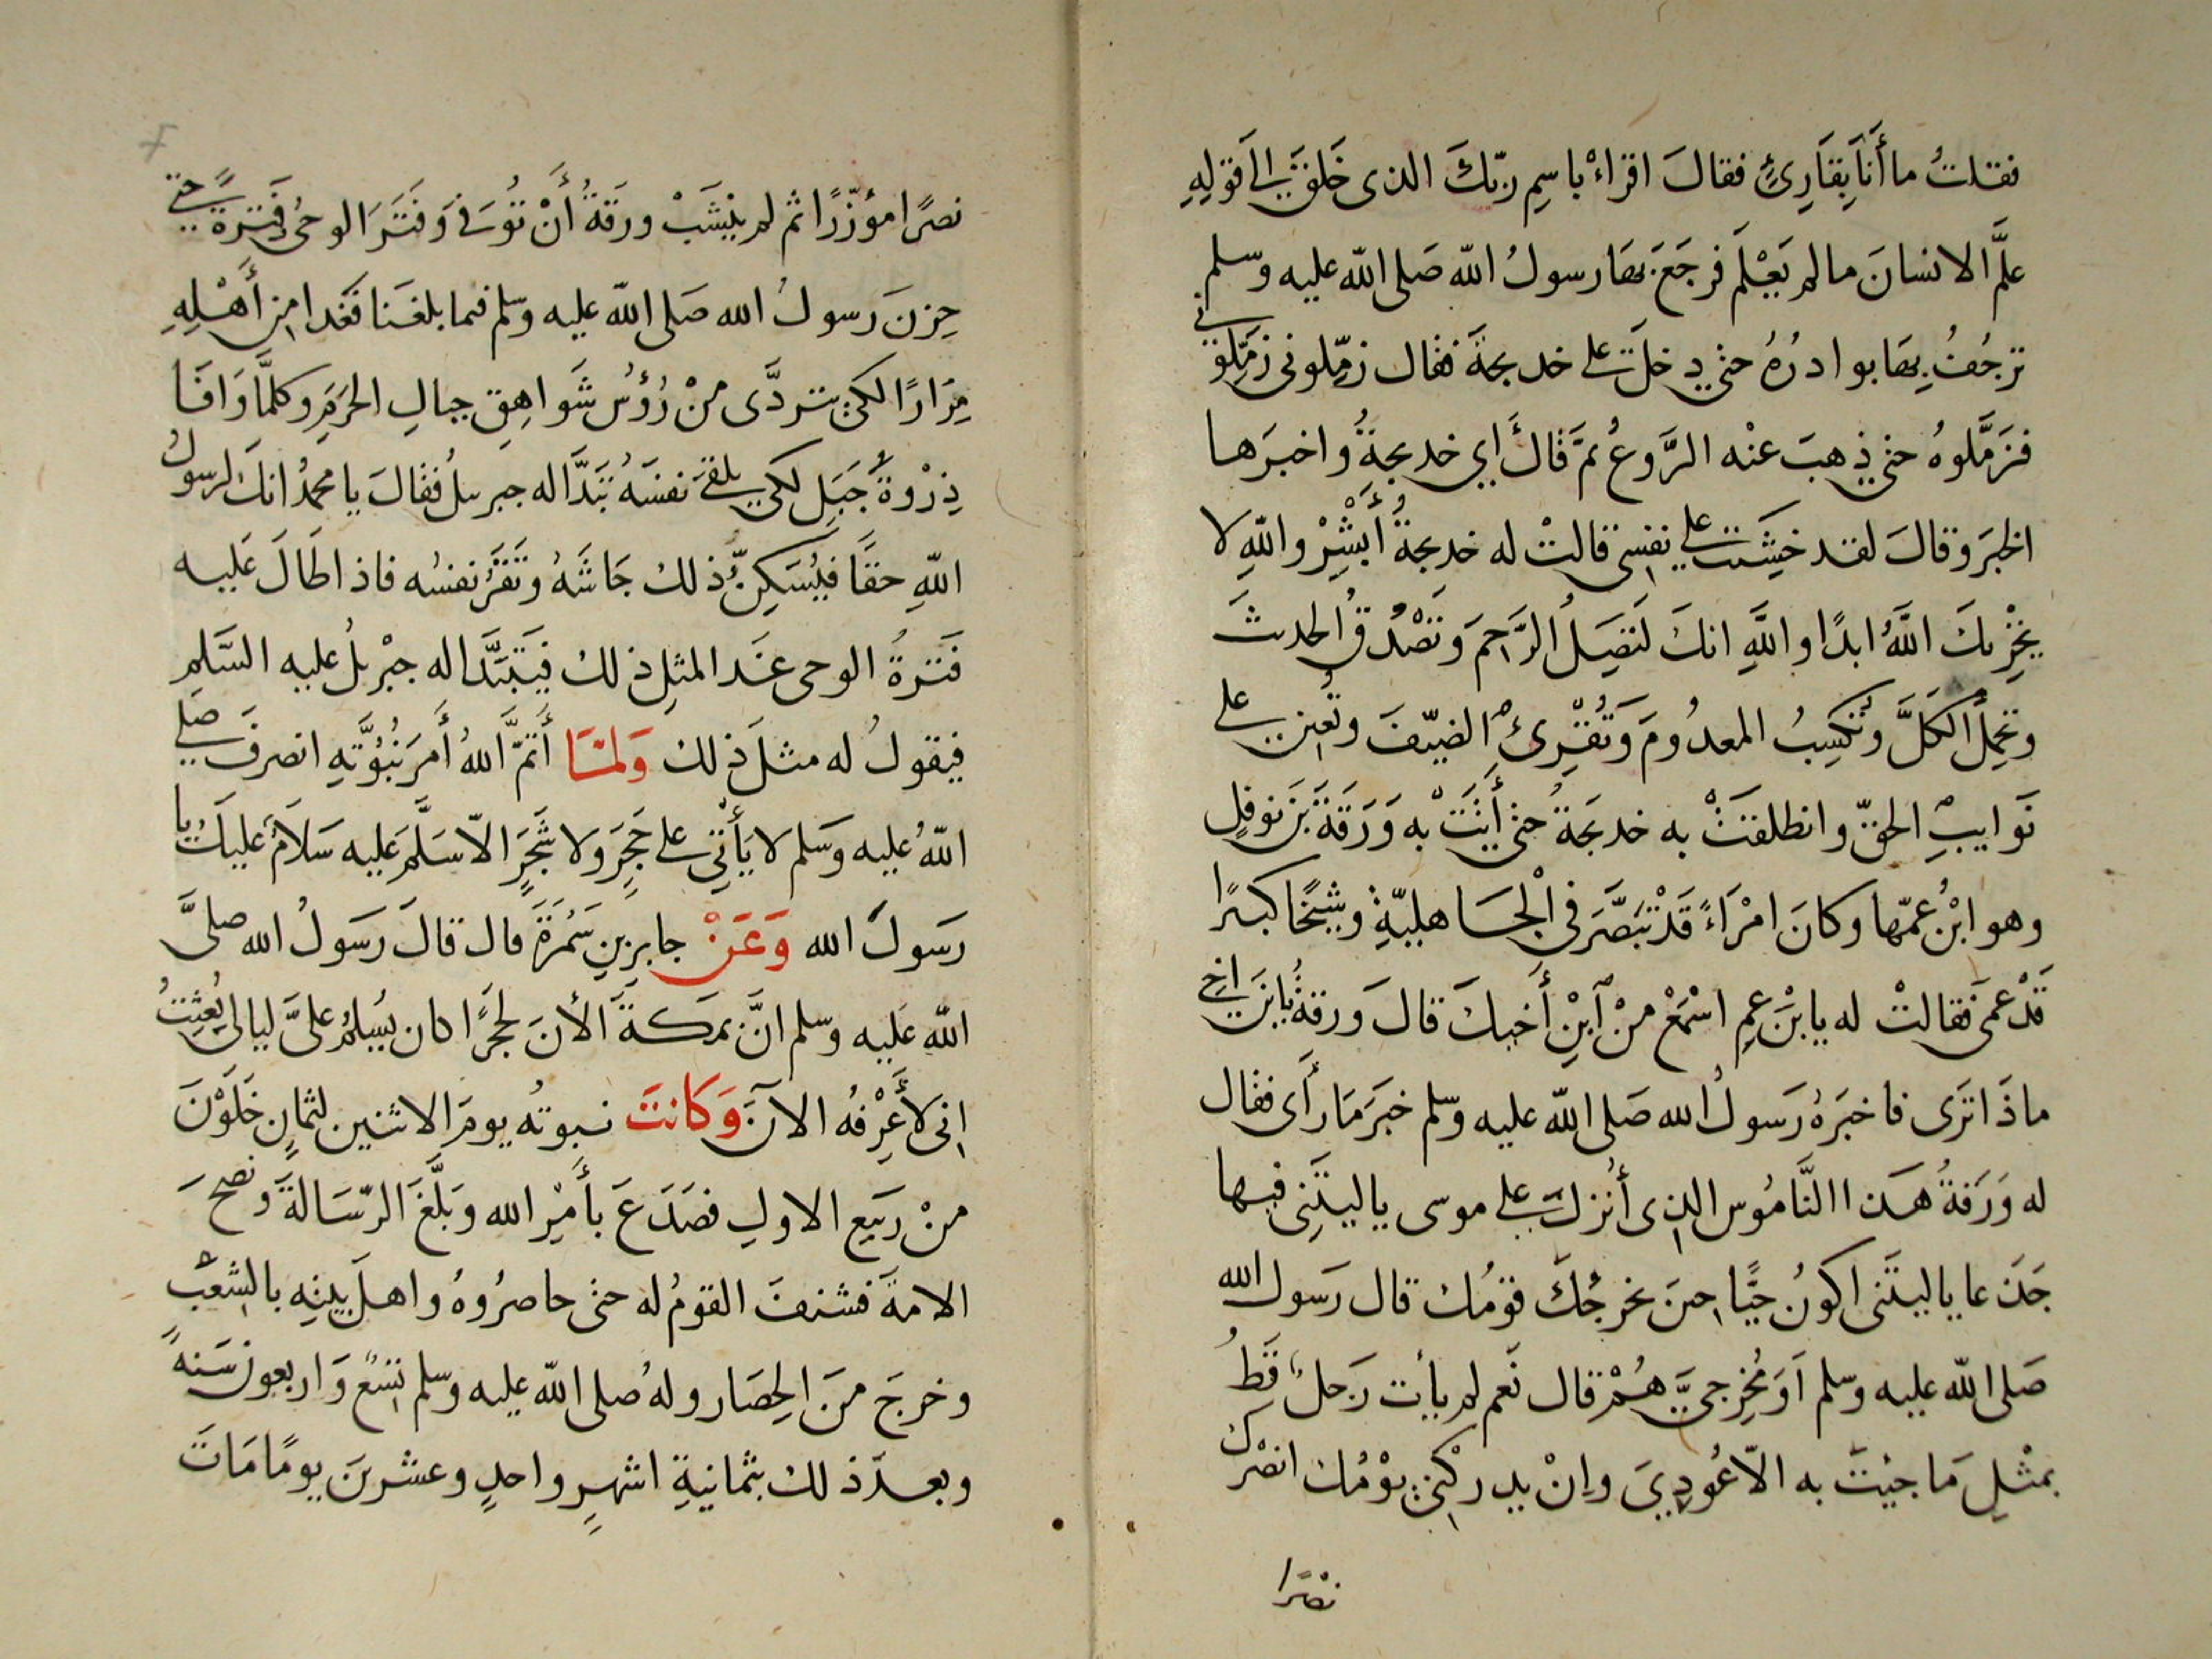 فقلتُ ما أَنَا بِقَارِئٍ فقالَ اقراءْ باسِمِ ربّكَ الذى خَلقَ الَى قولِهِ
علَّمَ الانسانَ مالم يَعْلَم فرجَعَ بهَا رسولُ اللّه صَلى اللّه عليه وسلم
ترجُفُ بِهَا بوادرُهُ حتى دخلَ على خديجةَ فقال زمِّلونى زمِّلونى
فزَمَّلوهُ حتى ذهبَ عنْه الرَّوعُ ثمَّ قالَ أي خديجةُ واخبرَها
الخبرَ وقالَ لقد خشَيت على نفسِى قالتْ له خديجةُ أَبْشِرْ واللّهِ لا
يخْزِيكَ اللَّهُ ابدًا واللَّهِ انكَ لَتَصِلُ الرَّحِمَ وتَصْدُقُ الحديثَ
وتحمِلُ الكَلَّ وتُكسِبُ المعدُومَ وَتُقْرِئُ الضيّفَ وتُعِين على
نَوايبِ الحقّ وانطلقتْ به خديجَةُ حتى أَتَتْ به وَرَقَةَ بْنَ نوفلٍ
وهو ابْنُ عمّها وكانَ امْرَاءً قَدْ تَنَصَّرَ فى الْجَاهليّةِ وشيْخًا كبيرًا
قَدْ عمَى فقالتْ له يابْنَ عمِ اسْمَعْ منْ ابْنِ أَخيكَ قالَ ورقةُ يابنَ اخى
ماذَا تَرَى فاخبرَهُ رَسولُ الله صَلى اللّه عليه وسلم خبرَ مَا رأَى فقال
له وَرَقةُ هَذا النَّامُوس الذِى أُنْزِلَ على موسى ياليتَنِى فيها
جَذَعا ياليتَنى اكونُ حيًّا حينَ يخرجُكَ قومُك قال رَسول الله
صَلى اللّه عليه وسلم اَوَ مُخْرِجيَّ هُمْ قال نَعم لم يأت رَجلٌ قَطُ
بمثْلِ مَا جيْتَ به الّا عُودِيَ واِنْ يدركنِى يوْمُك انصُرْك
نصْرًا
نصرًا مؤزّرًا ثم لم ينْشَبْ ورقَةُ أَنْ تُوُفىَ وَفَتَرَ الوحىُ فَتْرةً حتى
حزِنَ رَسولُ الله صَلى اللّه عليه وسلم فيما بلغَنا فَغدا مِن أَهْلِهِ
مِرَارًا لكى يتردَّى منْ رُؤُسُ شَواهِق جبالِ الحرَمِ وكلمَّا وَافَا
ذِرْوةَ جَبَلٍ لكى يلقىَ نفسَهُ تبَدَّا له جبريلُ فقالَ يا محمدُ انكَ لرسولُ
اللّهِ حقَّا فيُسَكِنُّ ذلك جَاشَهُ وتَقَرُّ نفسُه فاذا طَالَ عَليه
فَترةُ الوحى غَدا لمثلِ ذلك فيَتبَدَّا له جبْريلُ عليه السَّلم
فيقولُ له مثلَ ذلك وَلمَّا أَتمَّ اللهُ أَمرَ نبُوَّتِهِ انصرفَ صَلى
اللّهُ عليه وَسلم لا يَأْتِى على حَجَرٍ وَلا شَجَرٍ الاّ سَلَّم عَليه سَلامُ عَليكَ يا
رَسولَ الله وَعَنْ جابرِ بنِ سَمُرَةَ قال قالَ رَسَولُ الله صلىَّ
اللّه عَليه وسلم انَّ بمَكةَ الأَنَ لحجَرًا كان يُسلمُ علىَّ ليالى بُعِثتُ
انِى لأَعْرِفُه الآنَ وَكَانتَ نبوتُه يومَ الاثنين لثمانٍ خَلَوْنَ
منْ رَبيَع الاولِ فصَدَعَ بأَمْرِ الله وَبَلَّغَ الرّسَالةَ ونصحَ
الامةَ فشنفَ القومُ له حتى حاصرُوهُ واهلَ بيتِه بالشِعْبِ
وخرجَ منَ الحِصَار ولهُ صلى اللّه عليه وسلم تِسَعٌ وَاربعونَ سَنهً
وبعدَ ذلك بثمانيةِ اشهرٍ واحدٍ وعشرينَ يومًا مَاتَ